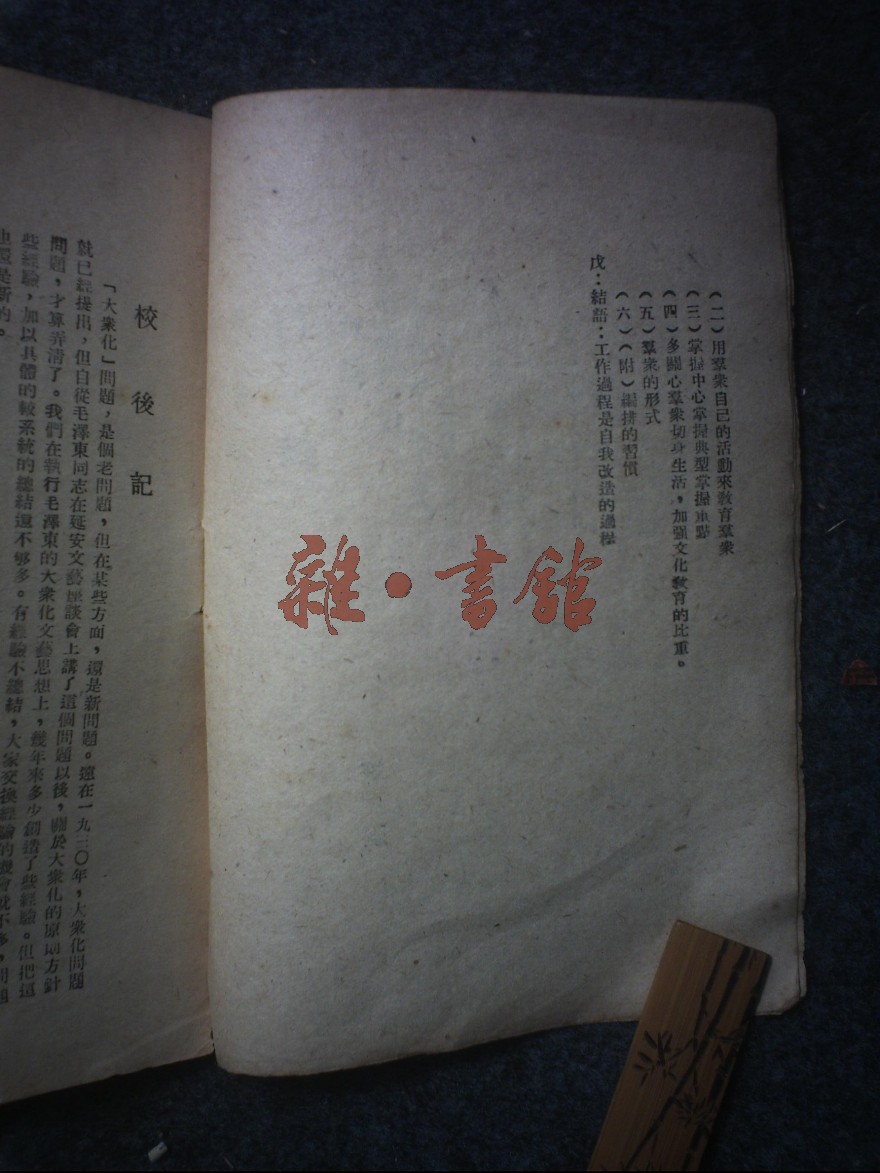 (二)用羣衆自己的活動來敎育羣衆
(三)掌握中心掌握典型掌握重點
(四)多關心羣衆切身生活,加强文化敎育的比重。
(五)羣衆的形式
(六)(附)編排的習慣
戊:結語:工作過程是自我改造的過程
雜·書館
校後記
「大衆化」問題,是個老問題,但在某些方面,還是新問題。遠在一九三〇年,大衆化問題
就已經提出,但自從毛澤東同志在延安文藝座談會上講了這個問題以後,關於大衆化的原則方針
問題,才算弄清了。我們在執行毛澤東的大衆化文藝思想上,幾年來多少創造了些經驗。但把這
些經驗,加以具體的較系統的總結還不够多。有經驗不總結,大家交換經驗的機會就不多,問題
也還是新的。